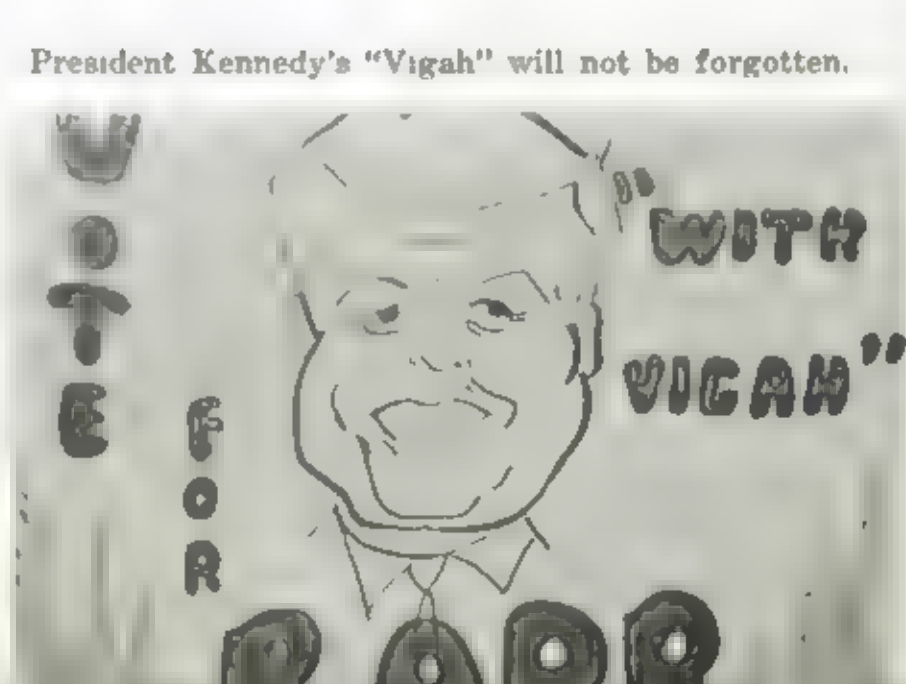 President Kennedy's "Vigah" will not be forgotten.
VOTE
FOR
"WITH
VIGAH"